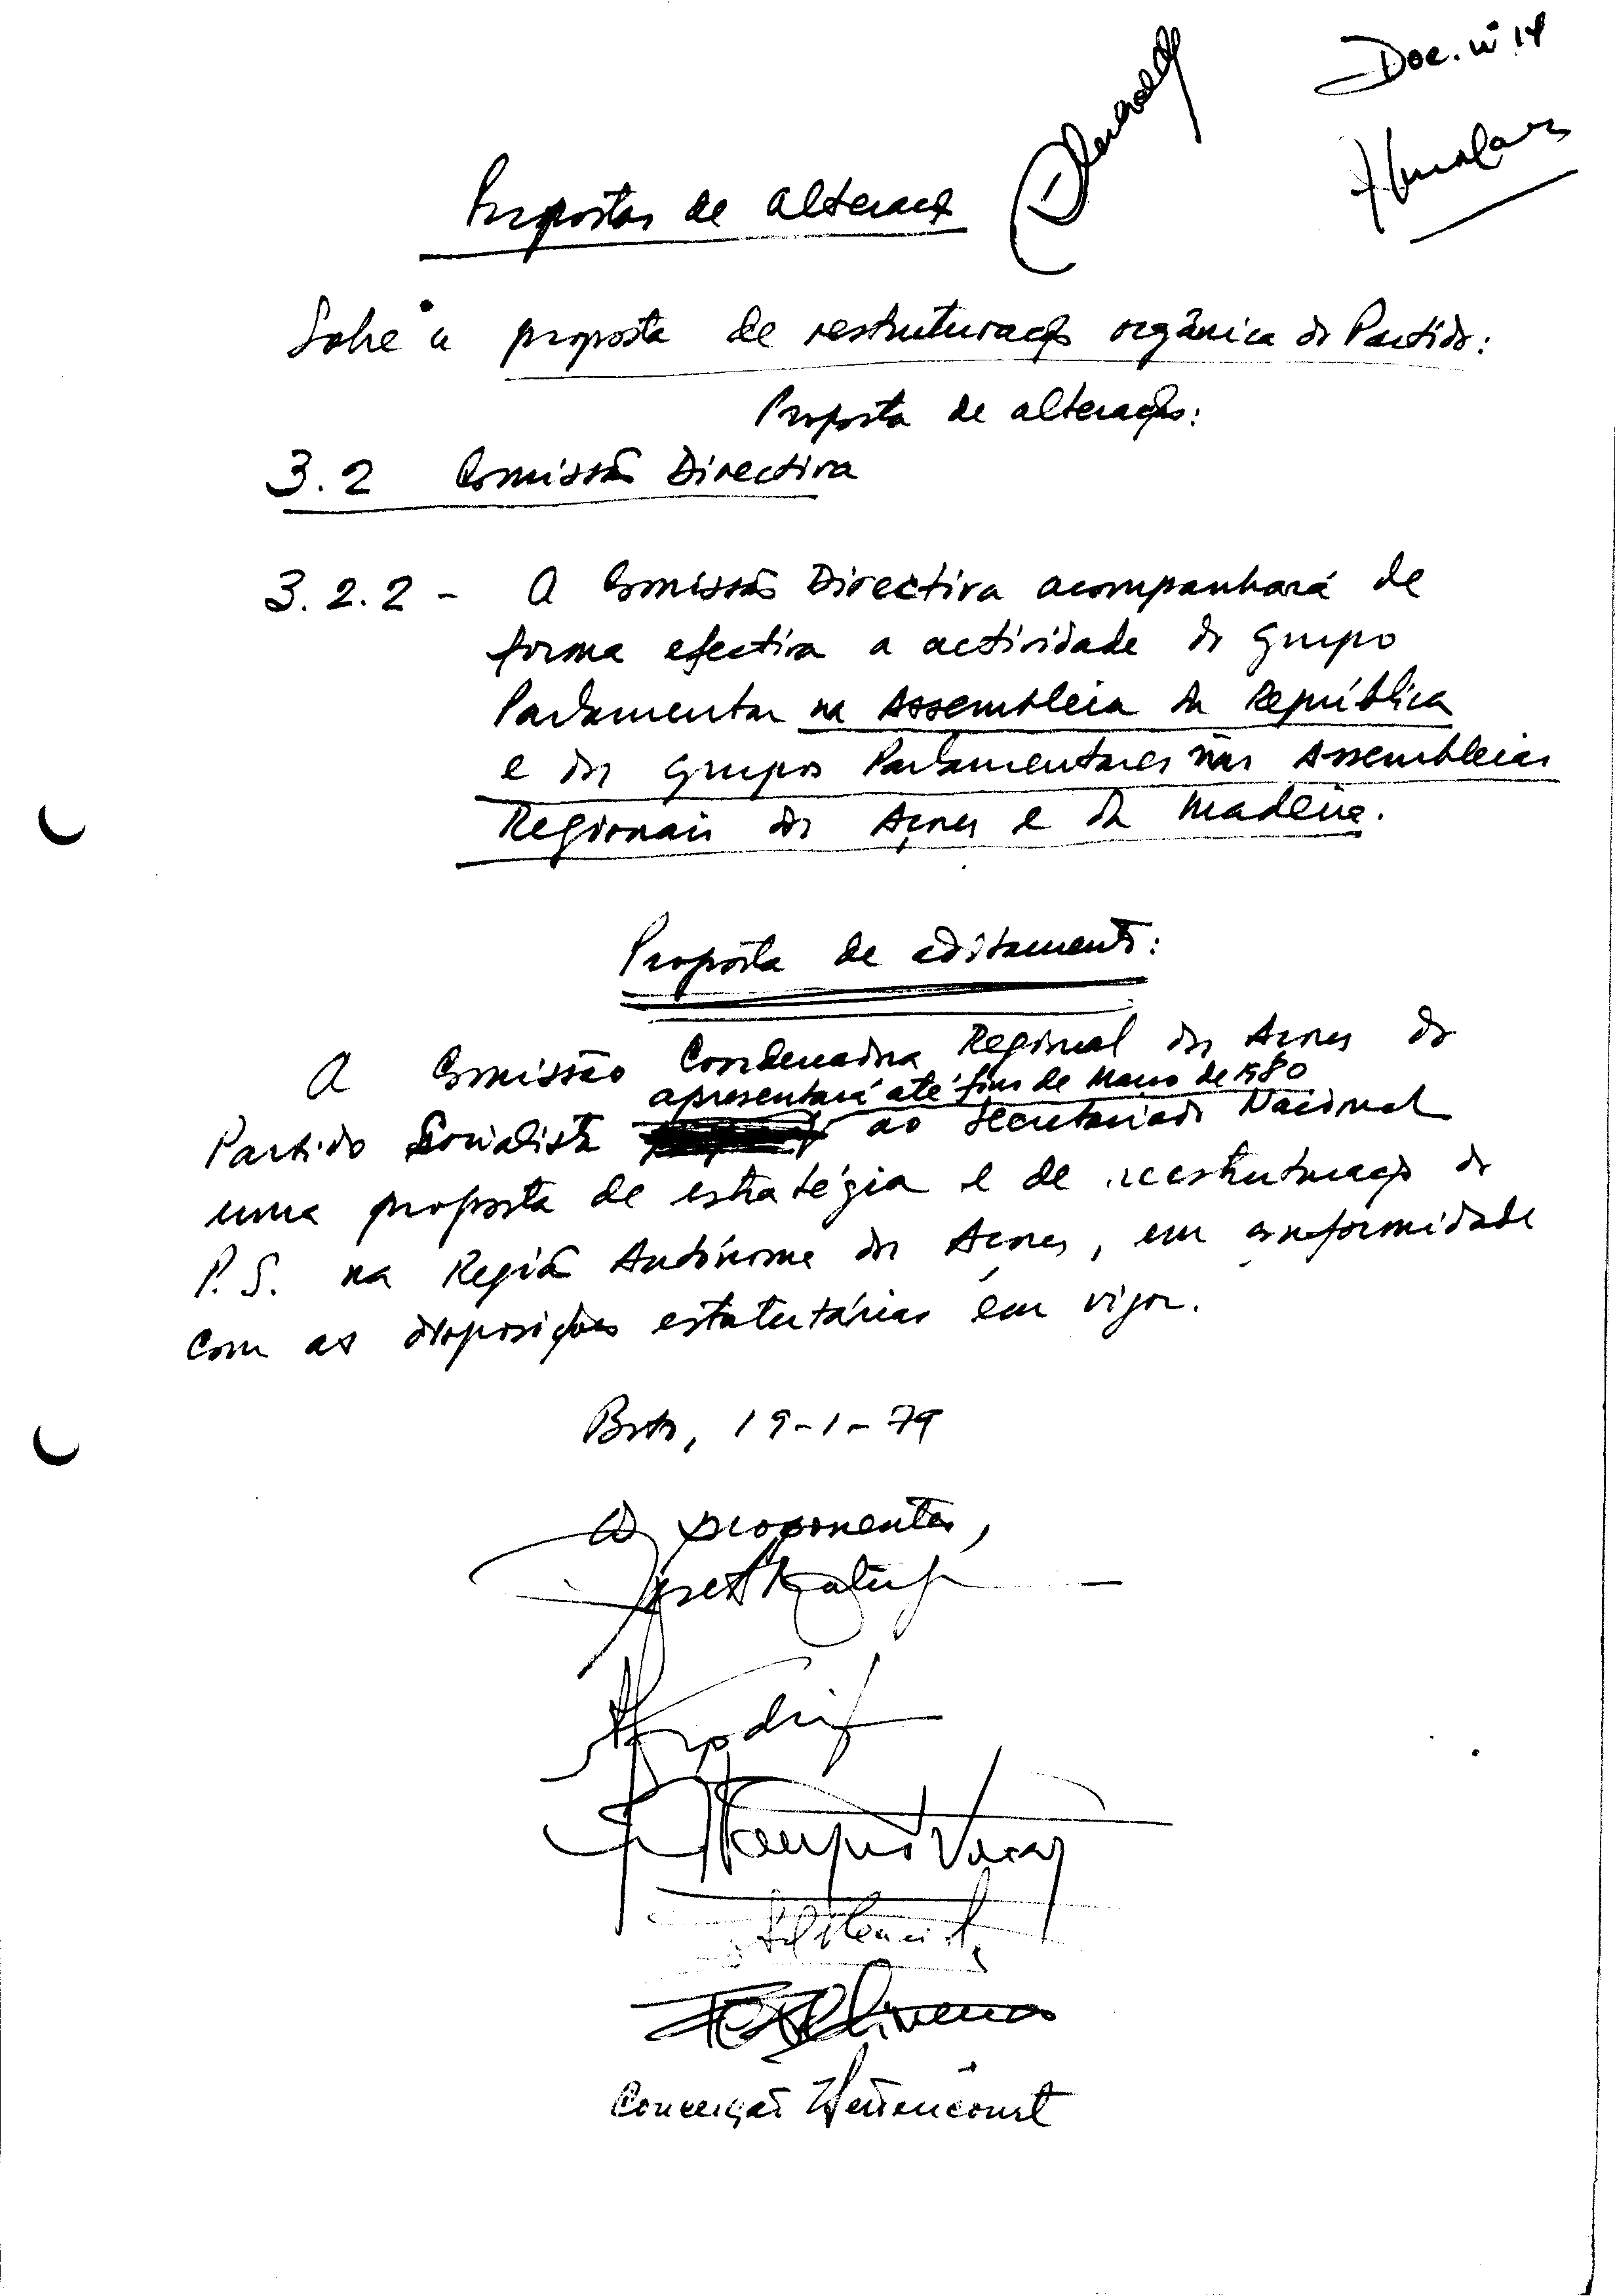 Doc. nº 14
Propostas de alteração
Sobre a proposta de restruturação orgânica do Partido:
Proposta de alteração:
3.2 Comissão Directiva
3.2.2 - A Comissão Directiva acompanhará de
forma efectiva a actividade do grupo
Parlamentar na Assembleia da República
e dos grupos Parlamentares nas Assembleias
Regionais dos Açores e da Madeira.
Proposta de aditamento:
A Comissão Coordenadora Regional dos Açores do
apresentará até fins de Março de 1980
Partido Socialista ao Secretariado Nacional
uma proposta de estratégia e de reestruturação do
P.S. na Região Autónoma dos Açores, em conformidade
com as disposições estatutárias em vigor.
19-1-79
Os proponentes,
Conceição Bettencourt